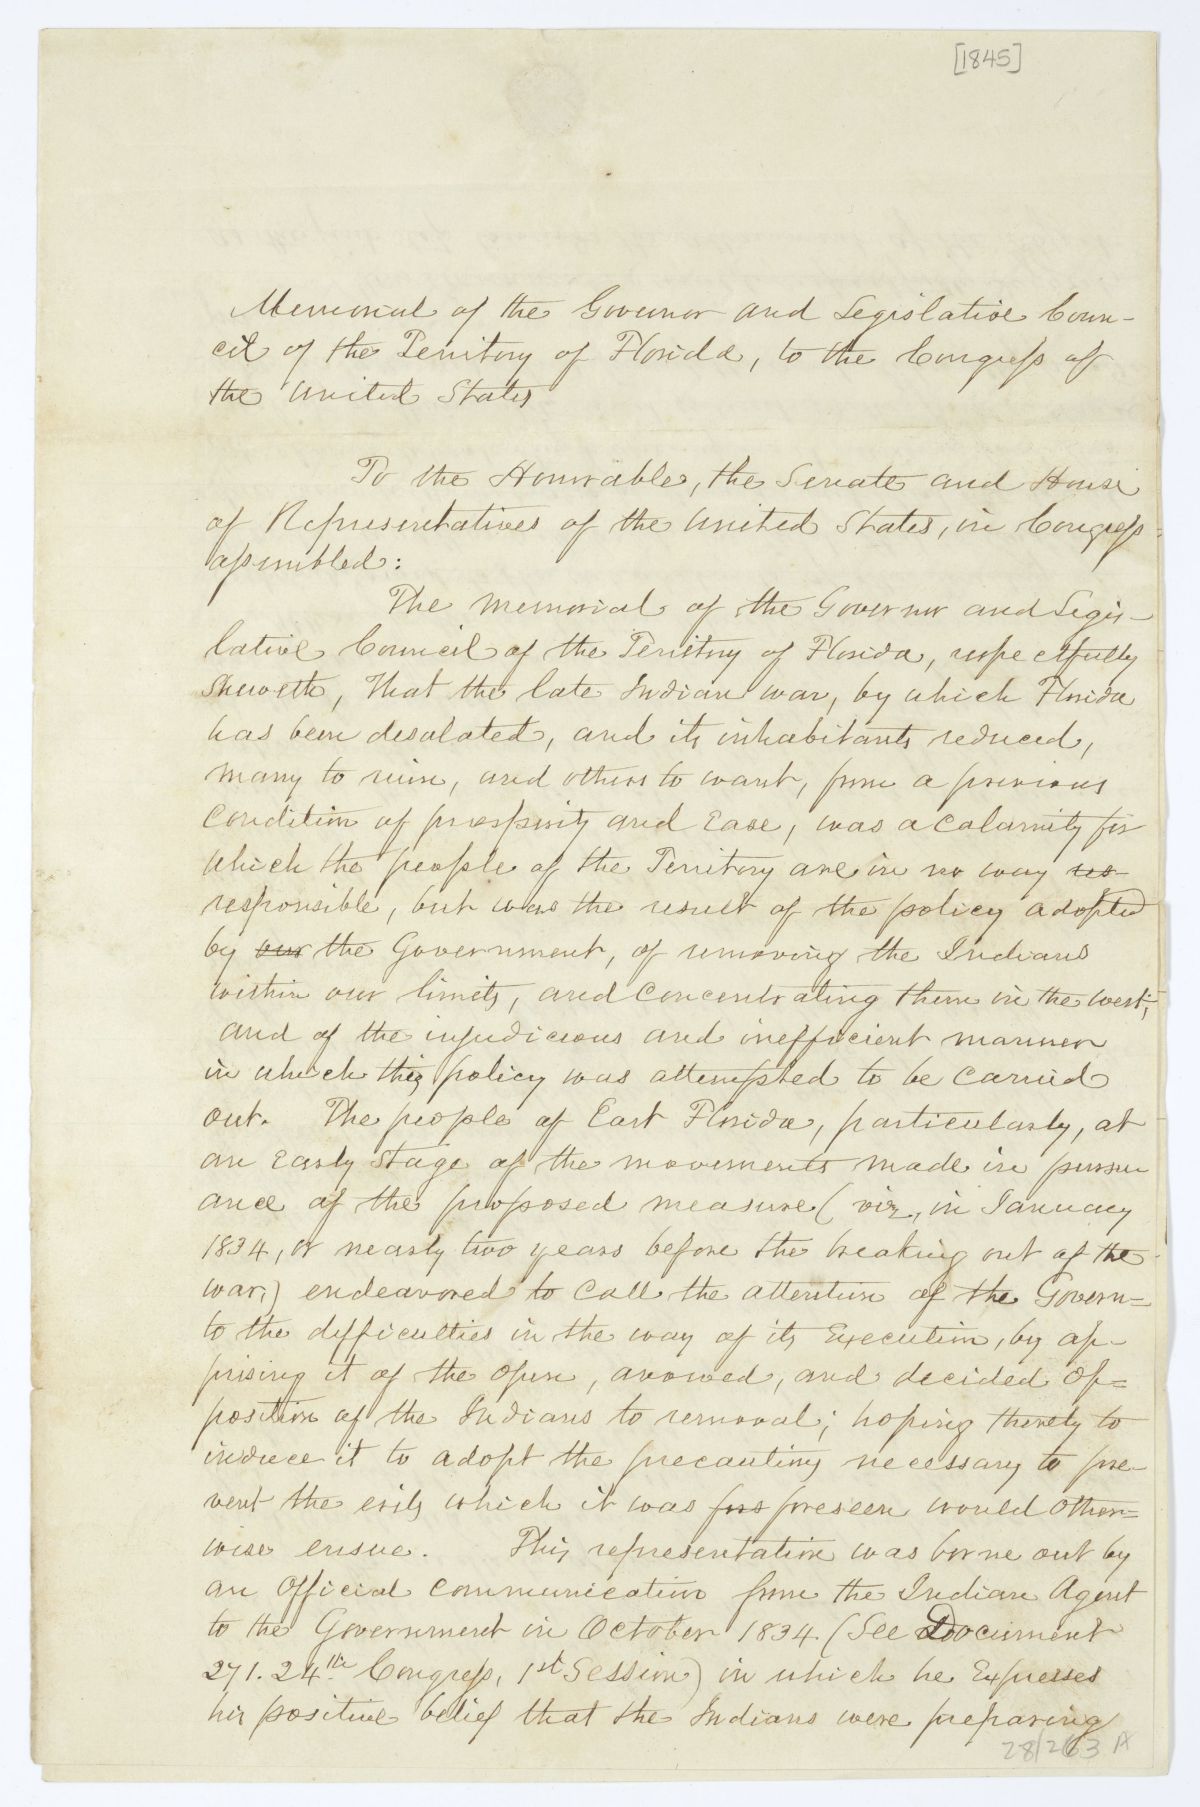 [1845]
Memorial of the Governor and Legislative Coun-
cil of the Territory of Florida, to the Congress of
the United States
To the Honorable, the Senate and House
of Representatives of the United States, in Congress
assembled:
The memorial of the Governor and Legis-
lative Council of the Territory of Florida, respectfully
Sheweth, That the late Indian war, by which Florida
has been desolated, and its inhabitants reduced,
many to ruin, and others to want, from a previous
Condition of prosperity and Ease, was a Calamity for
which the people of the Territory are in no way res-
responsible, but was the result of the policy adopted
by our the Government, of removing the Indians
within our limits, and Concentrating them in the west;
and of the injudicious and inefficient manner
in which this policy was attempted to be Carried
out. The people of East Florida, particularly, at
an Early Stage of the movements made in pursu
ance of the proposed measure (viz., in January
1834, or nearly two years before the breaking out of the
war,) endeavored to Call the attention of the Govern=
to the difficulties in the way of its Execution, by ap-
prising it of the open, avowed, and decided op=
position of the Indians to removal; hoping thereby to
induce it to adopt the precautions necessary to pre-
vent the evils which it was fors foreseen would other=
wise ensue. This representation was borne out by
an Official Communication from the Indian Agent
to the Government in October 1834 (See Document
271. 24th Congress, 1st Session) in which he Expresses
his positive belief that the Indians were preparing
28/263 A